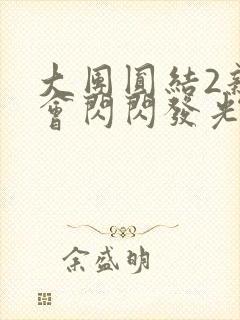 大團圓結2新
會閃閃發光
余盛明